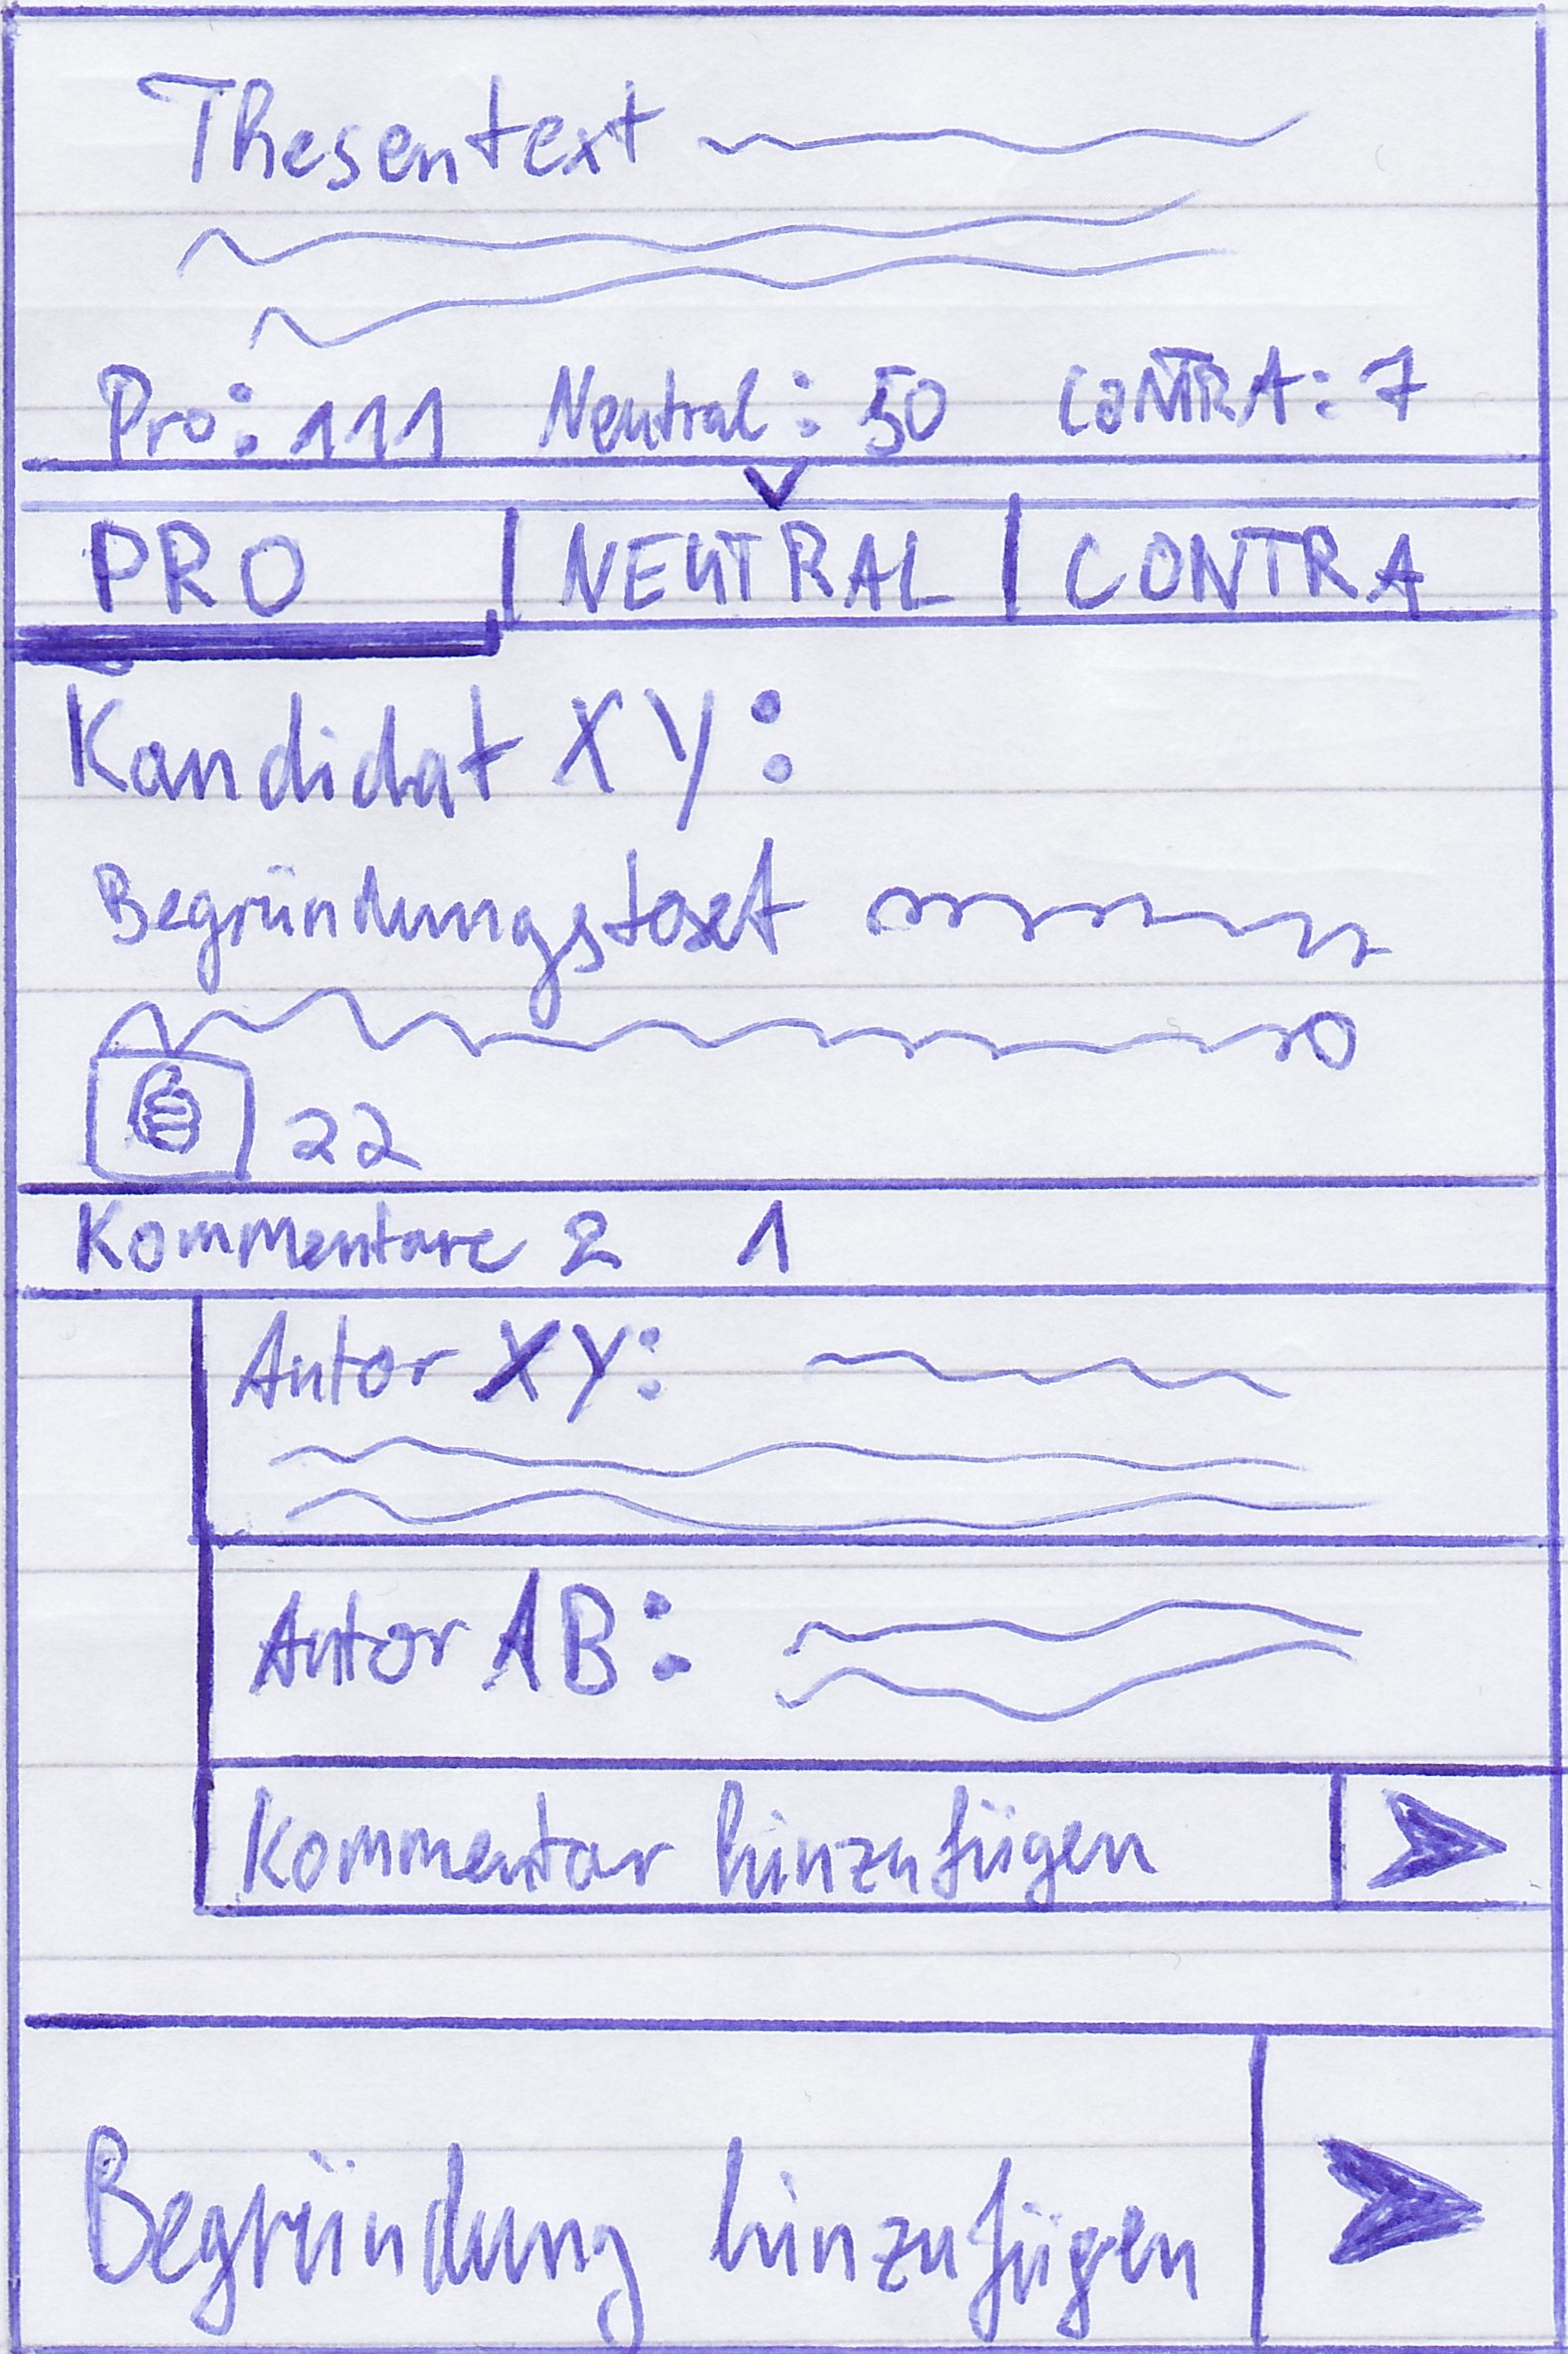 Thesentext
Pro: 111 Neutral: 50 CONTRA: 7
PRO | NEUTRAL | CONTRA
Kandidat XY:
Begründungstext
22
Kommentare 2 1
Autor XY:
Autor AB:
Kommentar hinzufügen
Begründung hinzufügen